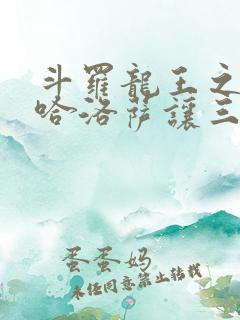 斗羅龍王之
哈洛薩讓三
蛋蛋妈
未经同意禁止转载